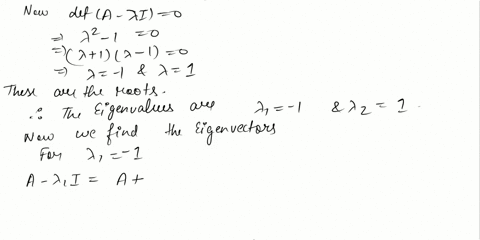 Now det(A - λI) = 0
⇒ λ² - 1 = 0
⇒ (λ+1)(λ-1) = 0
⇒ λ = -1 & λ = 1
These are the roots.
∴ The Eigenvalues are λ₁ = -1 & λ₂ = 1.
Now we find the Eigenvectors
For λ₁ = -1
A - λ₁I = A +